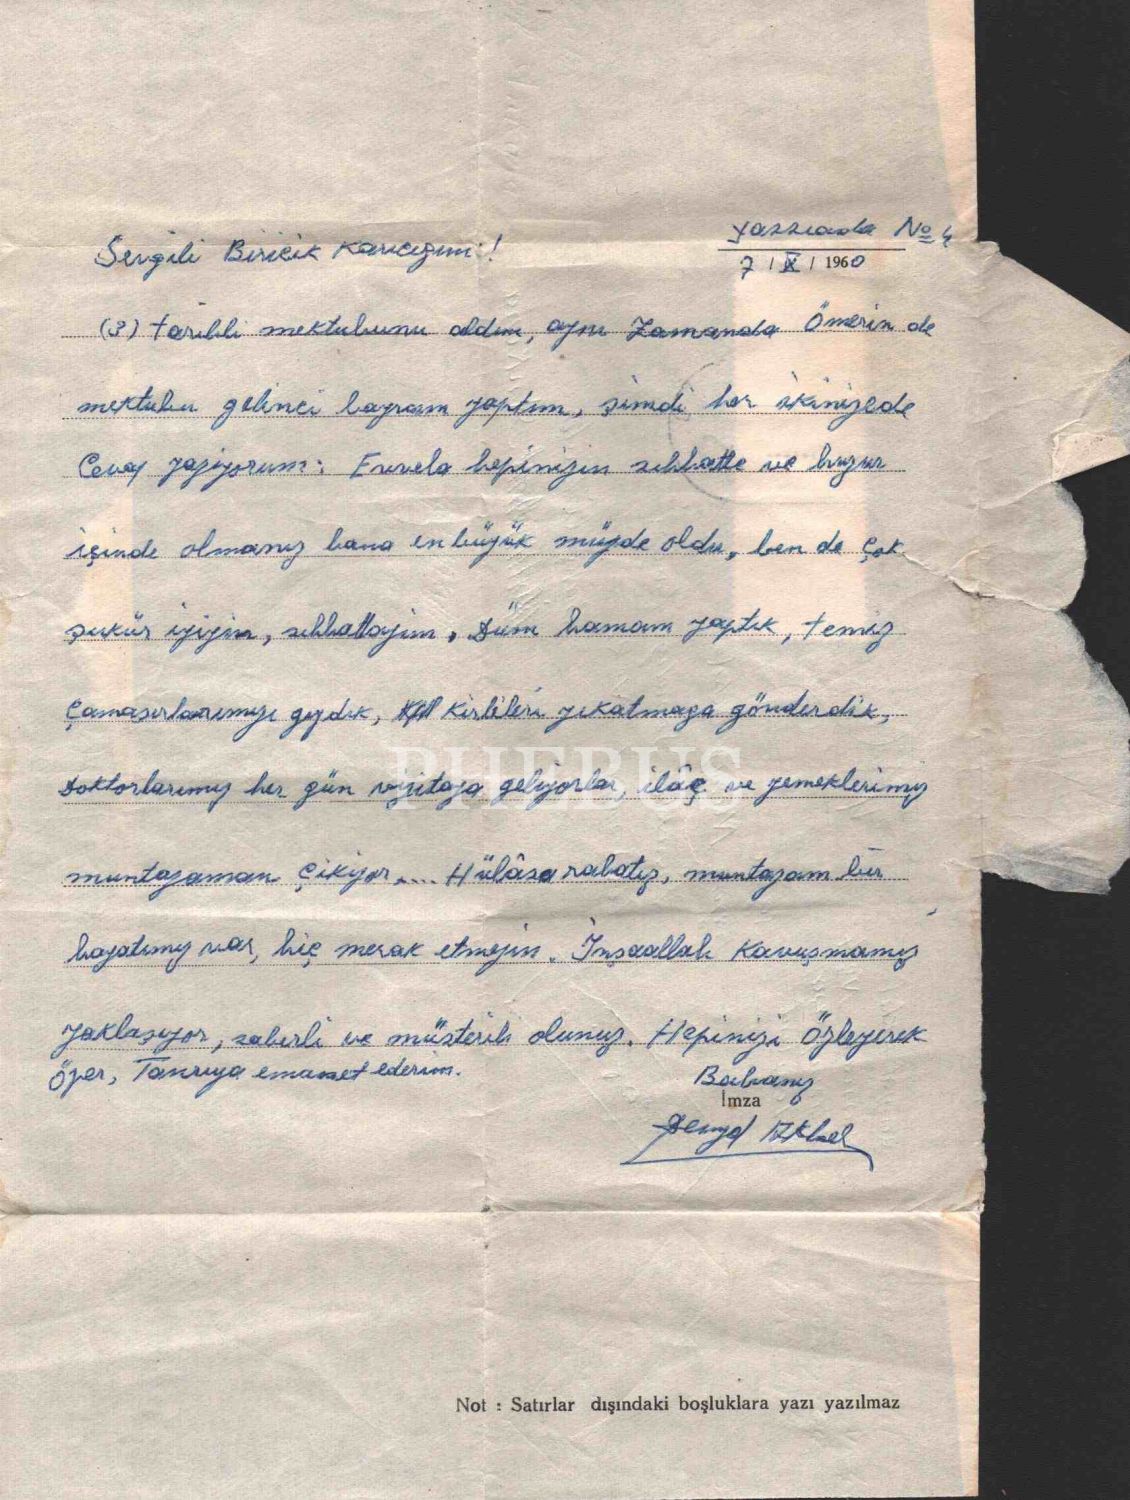 Yassıada No 4
Sevgili Biricik Karıcığım!
7 / IX / 1960
(3) tarihli mektubunu aldım, aynı zamanda Ömerin de
mektubu gelinci bayram yaptım, şimdi her ikinizede
Cevap yazıyorum: Evvela hepinizin sıhhatte ve huzur
içinde olmanız bana en büyük müjde oldu, ben de çok
şükür iyiyim, sıhhattayim, Dün hamam yaptık, temiz
Çamaşırlarımızı giydik, kirlileri yıkatmağa gönderdik,
Doktorlarımız her gün vizitaya geliyorlar, ilâç ve yemeklerimiz
PHEBUS
muntazaman çıkıyor.... Hülâsa rahatız, muntazam bir
hayatımız var, hiç merak etmeyin. İnşaallah Kavuşmamız
yaklaşıyor, sabırlı ve müsterih olunuz. Hepinizi Özleyerek
Öper, Tanrıya emanet ederim.
Babanız
İmza
Not : Satırlar dışındaki boşluklara yazı yazılmaz